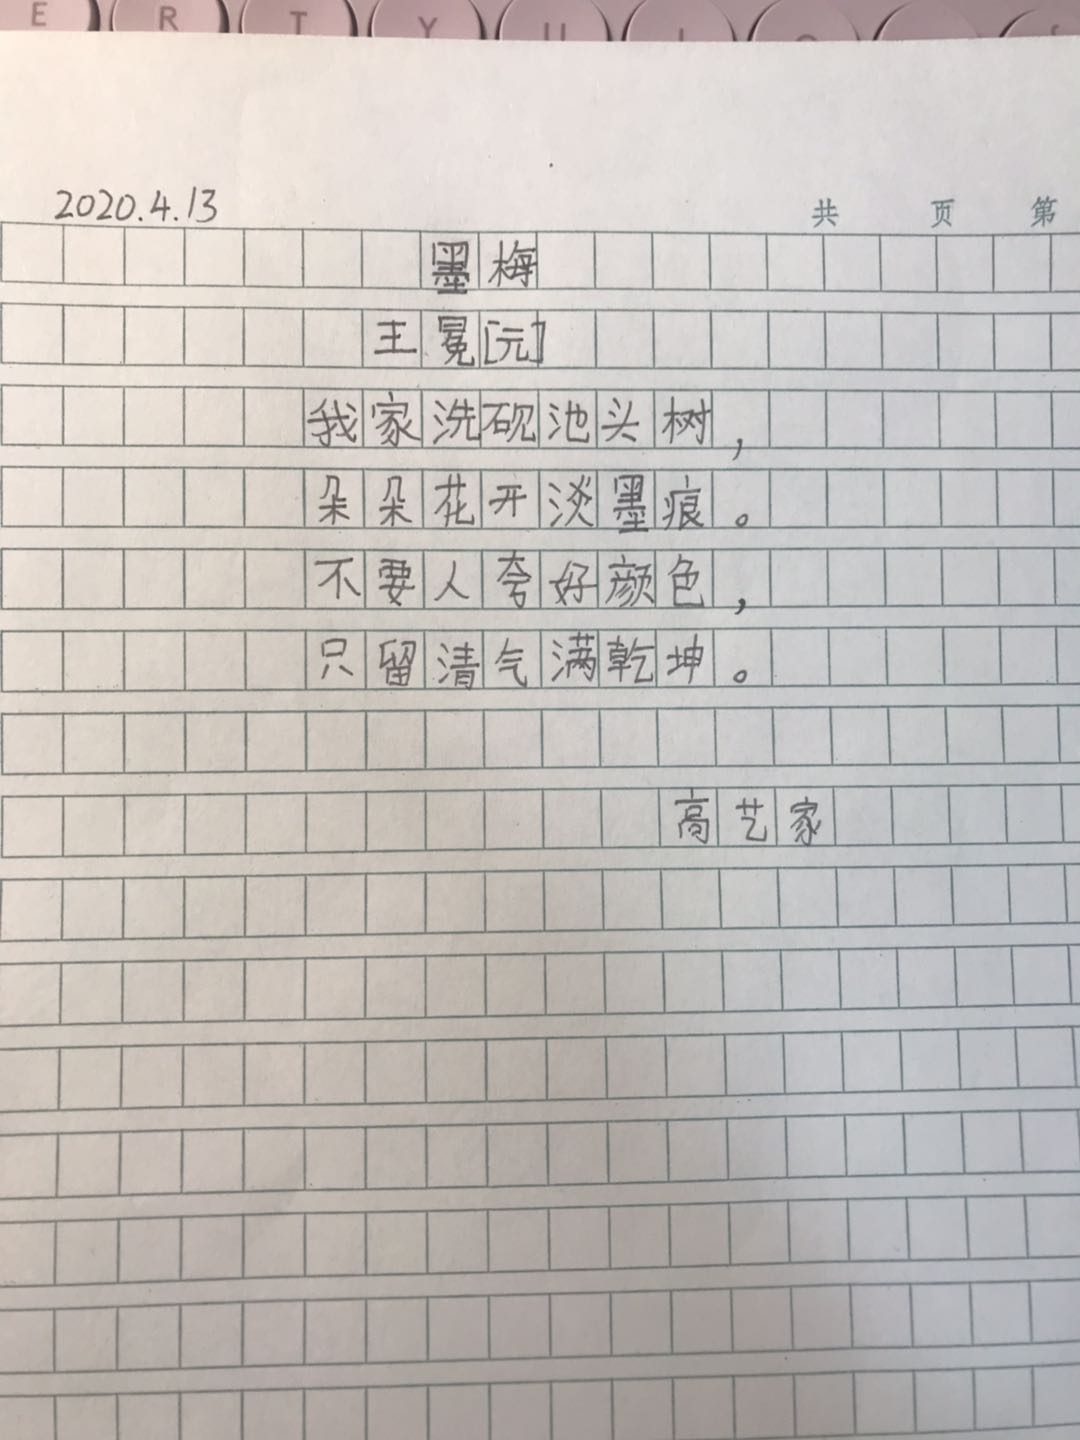 E R T Y U I O
2020.4.13
共 页 第
墨梅
王冕[元]
我家洗砚池头树，
朵朵花开淡墨痕。
不要人夸好颜色，
只留清气满乾坤。
高艺家